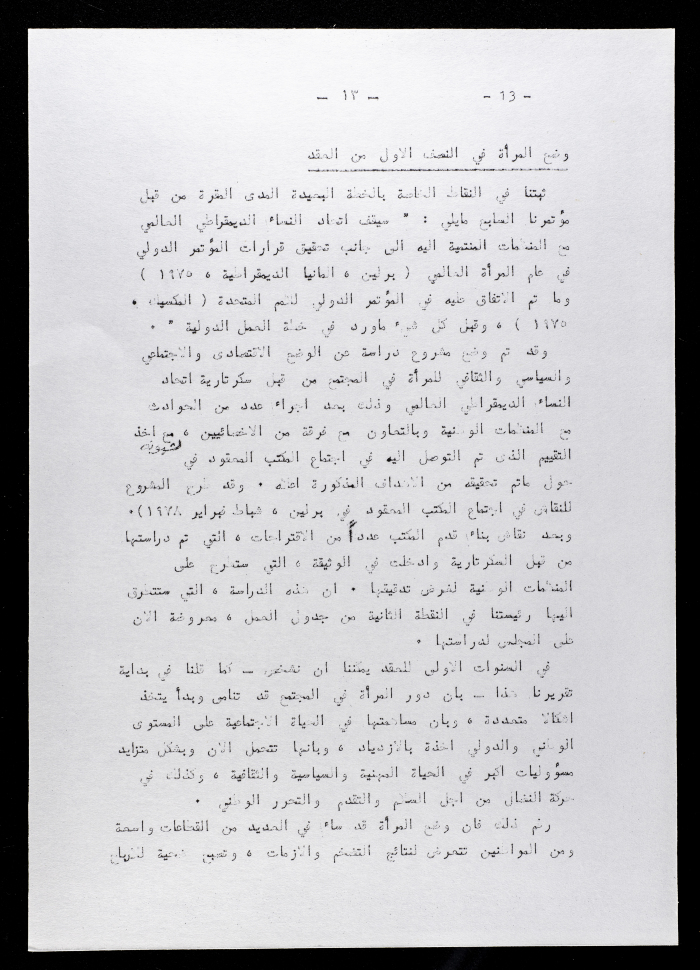 - ١٣ -    - 13 -
وضع المرأة في النصف الاول من العقد
ثبتنا في النقاط الخاصة بالخطة البعيدة المدى المقرة من قبل
مؤتمرنا السابع مايلي : " سيقف اتحاد النساء الديمقراطي العالمي
مع المنظمات المنتمية اليه الى جانب تحقيق قرارات المؤتمر الدولي
في عام المرأة العالمي ( برلين ، المانيا الديمقراطية ، ١٩٧٥ )
وما تم الاتفاق عليه في المؤتمر الدولي للامم المتحدة ( المكسيك ،
١٩٧٥ ) ، وقبل كل شيء ماورد في خطة العمل الدولية " .
وقد تم وضع مشروع دراسة عن الوضع الاقتصادى والاجتماعي
والسياسي والثقافي للمرأة في المجتمع من قبل سكرتارية اتحاد
النساء الديمقراطي العالمي وذلك بعد اجراء عدد من الحوادث
مع المنظمات الوطنية وبالتعاون مع فرقة من الاخصائيين ، مع اخذ
التقييم الذى تم التوصل اليه في اجتماع المكتب المعقود في لشبونة
حول ماتم تحقيقه من الاهداف المذكورة اعلاه . وقد طرح المشروع
للنقاش في اجتماع المكتب المعقود في برلين ، شباط فبراير ١٩٧٨) .
وبعد نقاش بناء قدم المكتب عدداً من الاقتراحات ، التي تم دراستها
من قبل السكرتارية وادخلت في الوثيقة ، التي ستطرح على
المنظمات الوطنية لغرض تدقيقها . ان هذه الدراسة ، التي ستتطرق
اليها رئيستنا في النقطة الثانية من جدول العمل ، معروضة الان
على المجلس لدراستها .
في السنوات الاولى للعقد يمكننا ان نشخص – كما قلنا في بداية
تقريرنا هذا – بان دور المرأة في المجتمع قد تنامى وبدأ يتخذ
اشكالا متعددة ، وبان مساهمتها في الحياة الاجتماعية على المستوى
الوطني والدولي اخذة بالازدياد ، وبانها تتحمل الان وبشكل متزايد
مسؤوليات اكبر في الحياة المهنية والسياسية والثقافية ، وكذلك في
حركة النضال من اجل السلام والتقدم والتحرر الوطني .
رغم ذلك فان وضع المرأة قد ساء في العديد من القطاعات واصحة
ومن المواطنين تتعرض لنتائج التضخم والازمات ، وتصبح ضحية